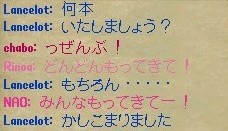 Lancelot: 何本
Lancelot: いたしましょう？
chabo: っぜんぶ！
Rinoa: どんどんもってきて！
Lancelot: もちろん・・・・・
NAO: みんなもってきてー！
Lancelot: かしこまりました